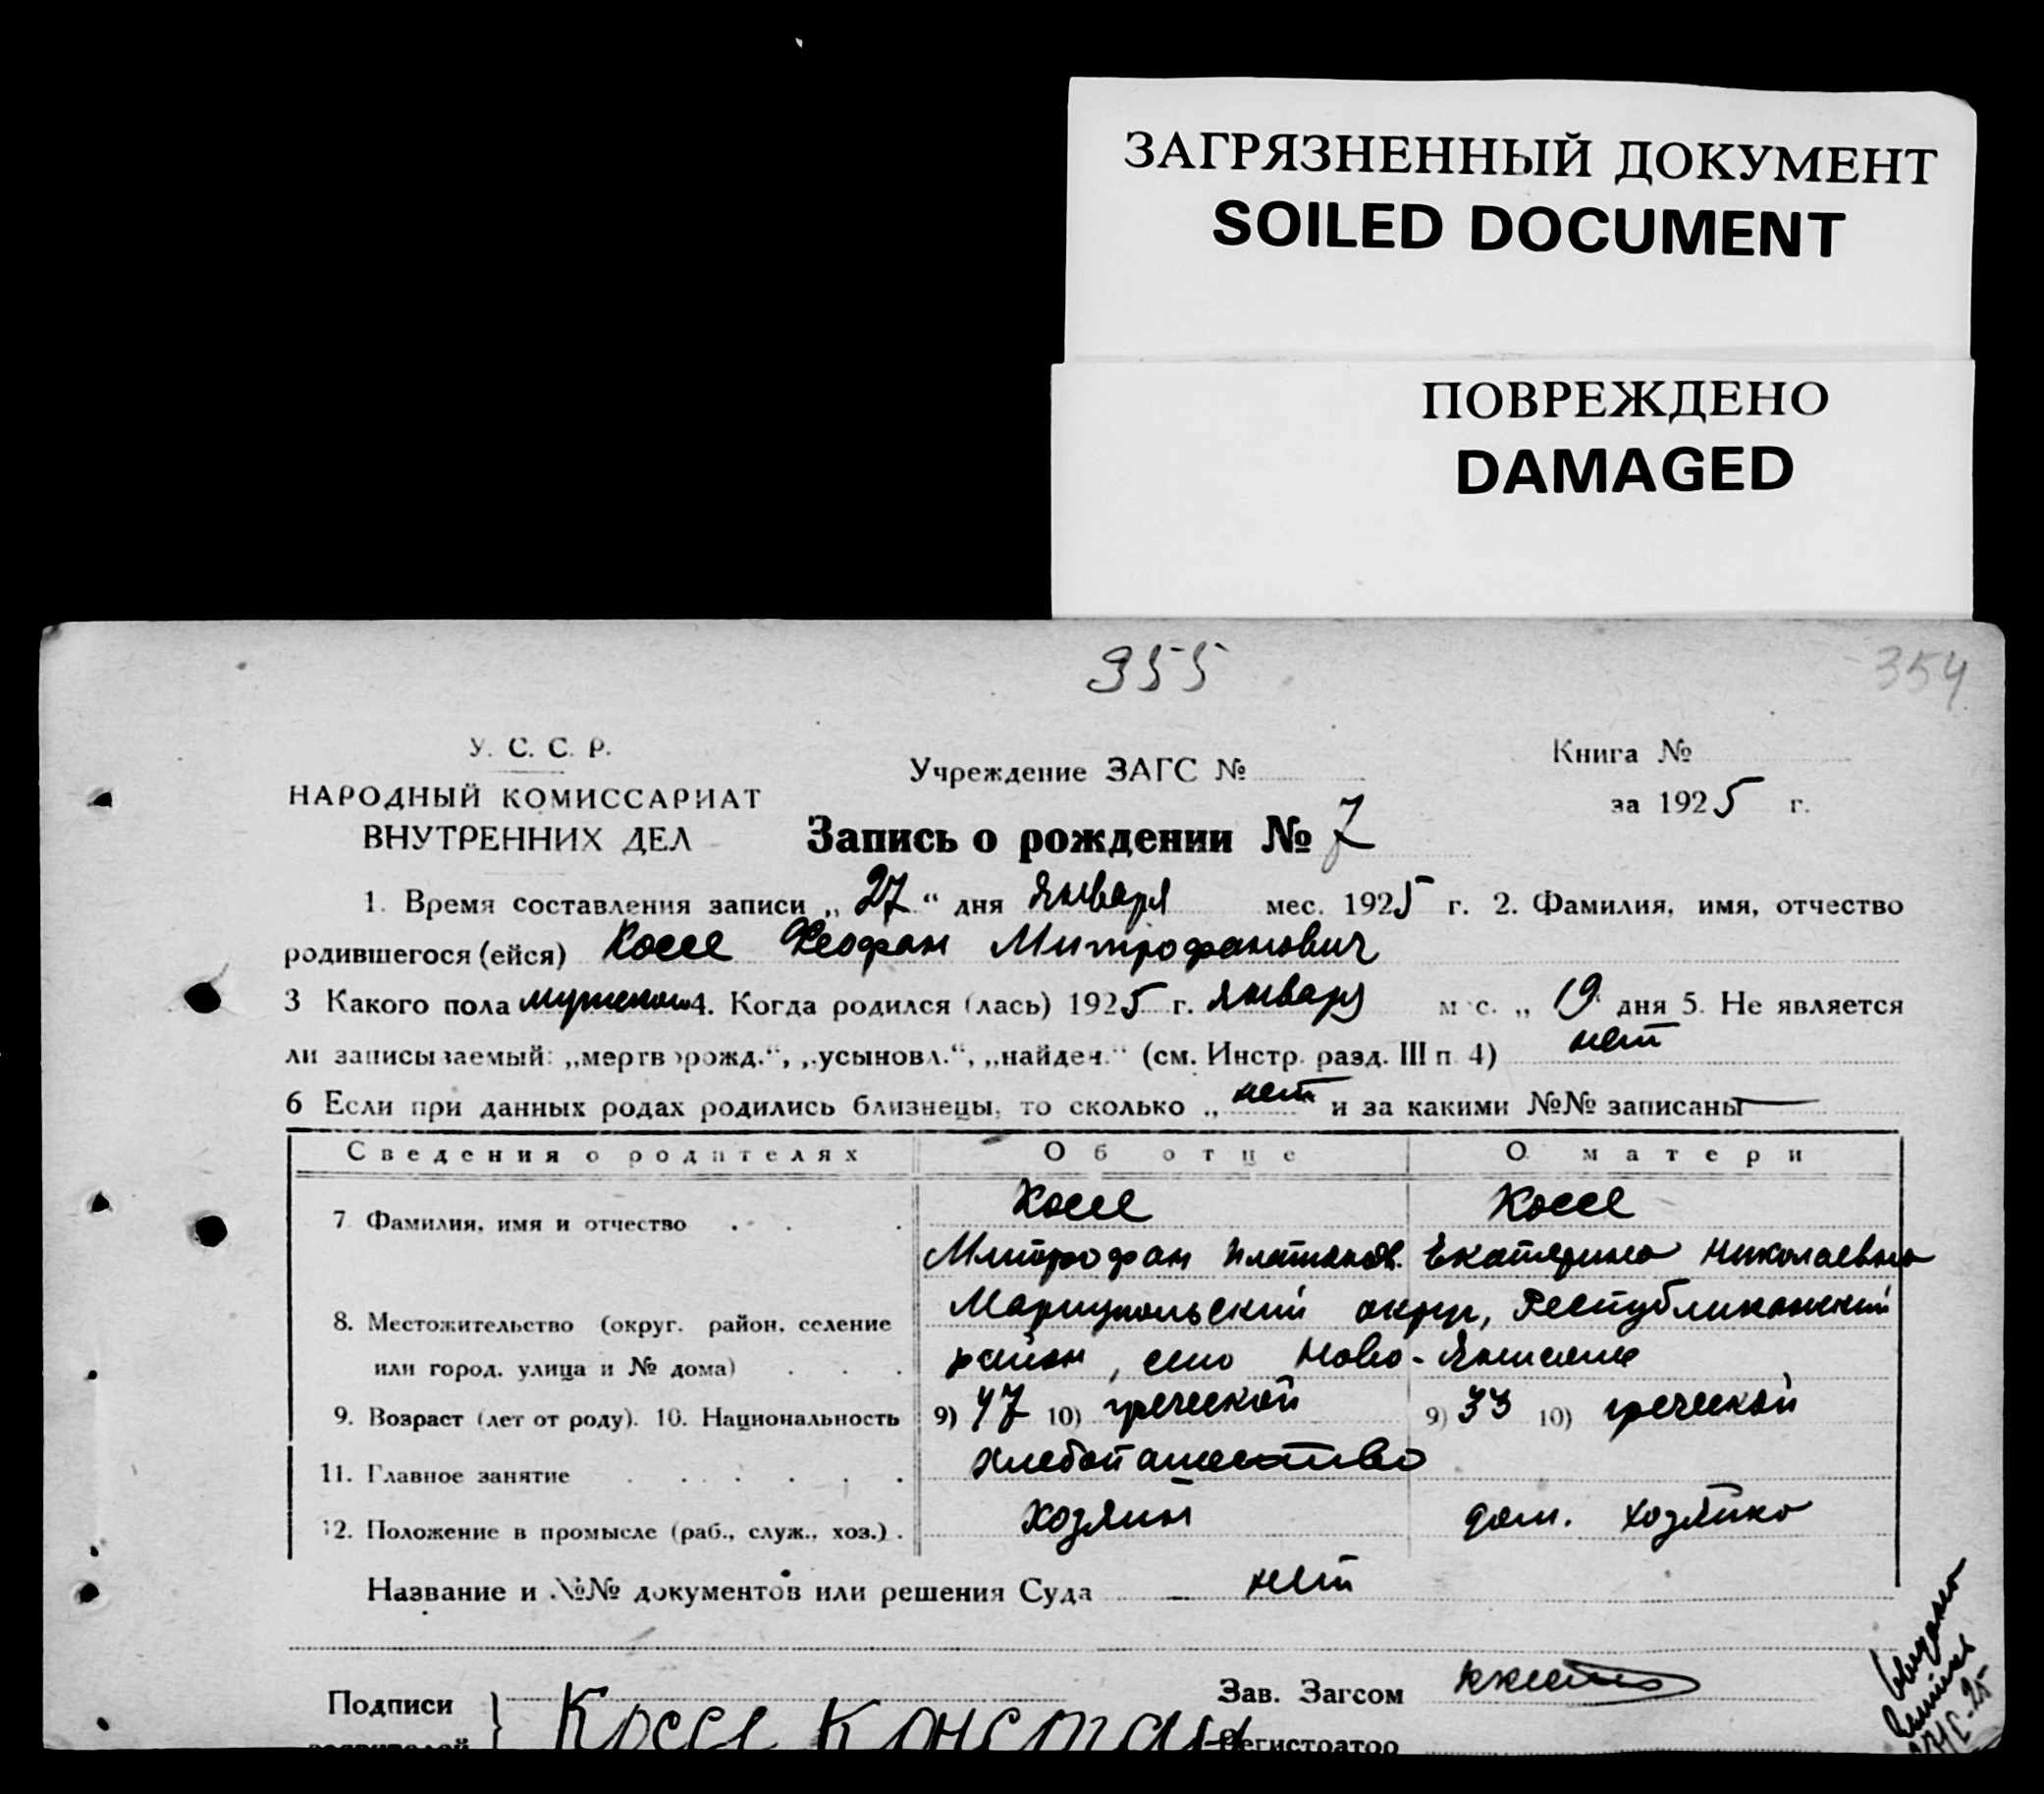 ЗАГРЯЗНЕННЫЙ ДОКУМЕНТ
SOILED DOCUMENT
ПОВРЕЖДЕНО
DAMAGED
355
354
У. С. С. Р.
НАРОДНЫЙ КОМИССАРИАТ
ВНУТРЕННИХ ДЕЛ
Учреждение ЗАГС №
Книга №
за 1925 г.
Запись о рождении № 7
1. Время составления записи „27“ дня января мес. 1925 г. 2. Фамилия, имя, отчество
родившегося (ейся) Косе Феофан Митрофанович
3 Какого пола мужеского 4. Когда родился (лась) 1925 г. января мес. „19 дня 5. Не является
ли записываемый: „мертворожд.“, „усыновл.“, „найден.“ (см. Инстр. разд. III п. 4) нет
6 Если при данных родах родились близнецы, то сколько „нет и за какими №№ записаны —
Сведения о родителях Об отце О матери
7 Фамилия, имя и отчество Косе Косе
Митрофан Платонов. Екатерина Николаевна
8. Местожительство (округ. район, селение Мариупольский округ, Республиканский
или город, улица и № дома) район, село Ново-Янисоль
9. Возраст (лет от роду). 10. Национальность 9) 47 10) греческой 9) 33 10) греческой
11. Главное занятие хлебопашество
12. Положение в промысле (раб., служ., хоз.) хозяин дом. хозяйка
Название и №№ документов или решения Суда — нет
Подписи
заявителей } Косе Констан
Зав. Загсом
Регистратор